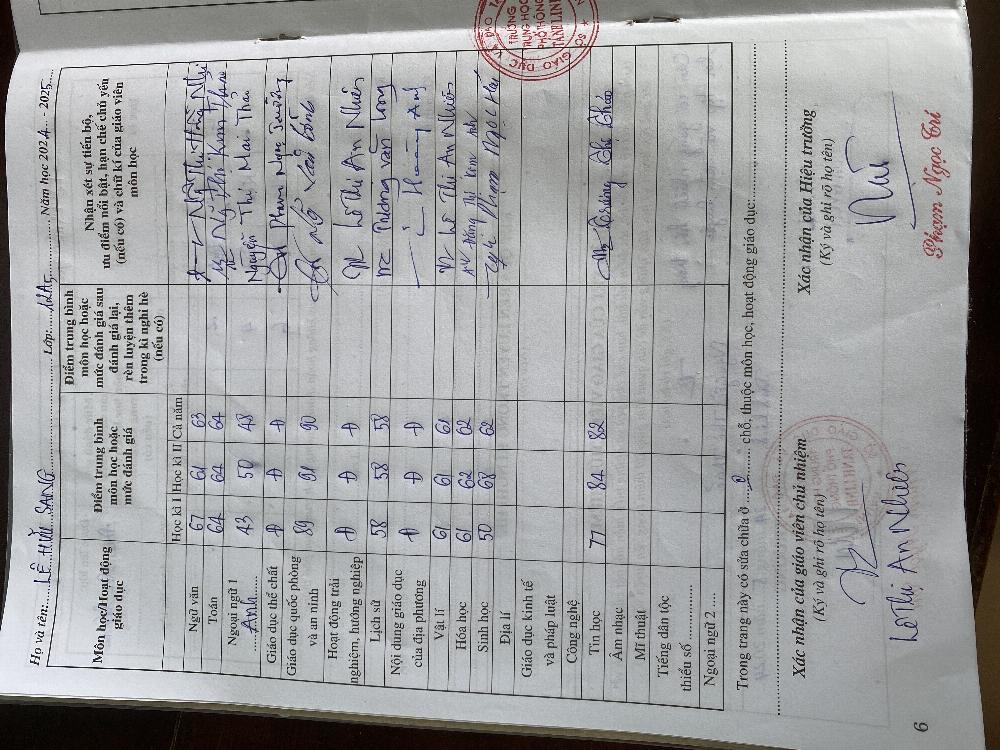 Họ và tên: LÊ HỮU SANG Lớp: 12A5 Năm học 2024 - 2025
Môn học/Hoạt động giáo dục
Điểm trung bình môn học hoặc mức đánh giá
Điểm trung bình môn học hoặc mức đánh giá sau đánh giá lại, rèn luyện thêm trong kì nghỉ hè (nếu có)
Nhận xét sự tiến bộ, ưu điểm nổi bật, hạn chế chủ yếu (nếu có) và chữ kí của giáo viên môn học
Học kì I Học kì II Cả năm
Ngữ văn 67 61 63
Toán 64 64 64
Ngoại ngữ 1 Anh 43 50 48 Nguyễn Thị Mai Thảo
Giáo dục thể chất Đ Đ Đ Phạm Ngọc
Giáo dục quốc phòng và an ninh 89 91 90
Hoạt động trải nghiệm, hướng nghiệp Đ Đ Đ Lê Thị An Nhiên
Lịch sử 58 58 58 Dương Văn Long
Nội dung giáo dục của địa phương Đ Đ Đ
Vật lí 61 61 61 Lê Thị An Nhiên
Hóa học 61 62 62
Sinh học 50 68 62 Phạm Ngọc Hải
Địa lí
Giáo dục kinh tế và pháp luật
Công nghệ
Tin học 77 84 82
Âm nhạc
Mĩ thuật
Tiếng dân tộc thiểu số
Ngoại ngữ 2
Trong trang này có sửa chữa ở 0 chỗ, thuộc môn học, hoạt động giáo dục:
Xác nhận của giáo viên chủ nhiệm
(Ký và ghi rõ họ tên)
Lê Thị An Nhiên
Xác nhận của Hiệu trưởng
(Ký và ghi rõ họ tên)
Phạm Ngọc Trí
TRƯỜNG
TRUNG HỌC
PHỔ THÔNG
TÁNH LINH
6